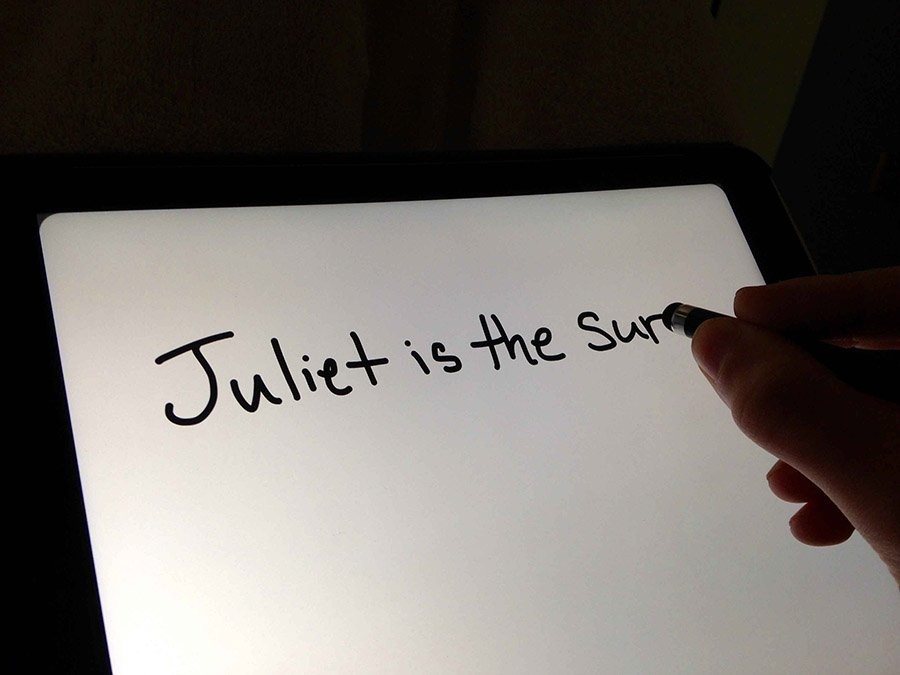 Juliet is the sun